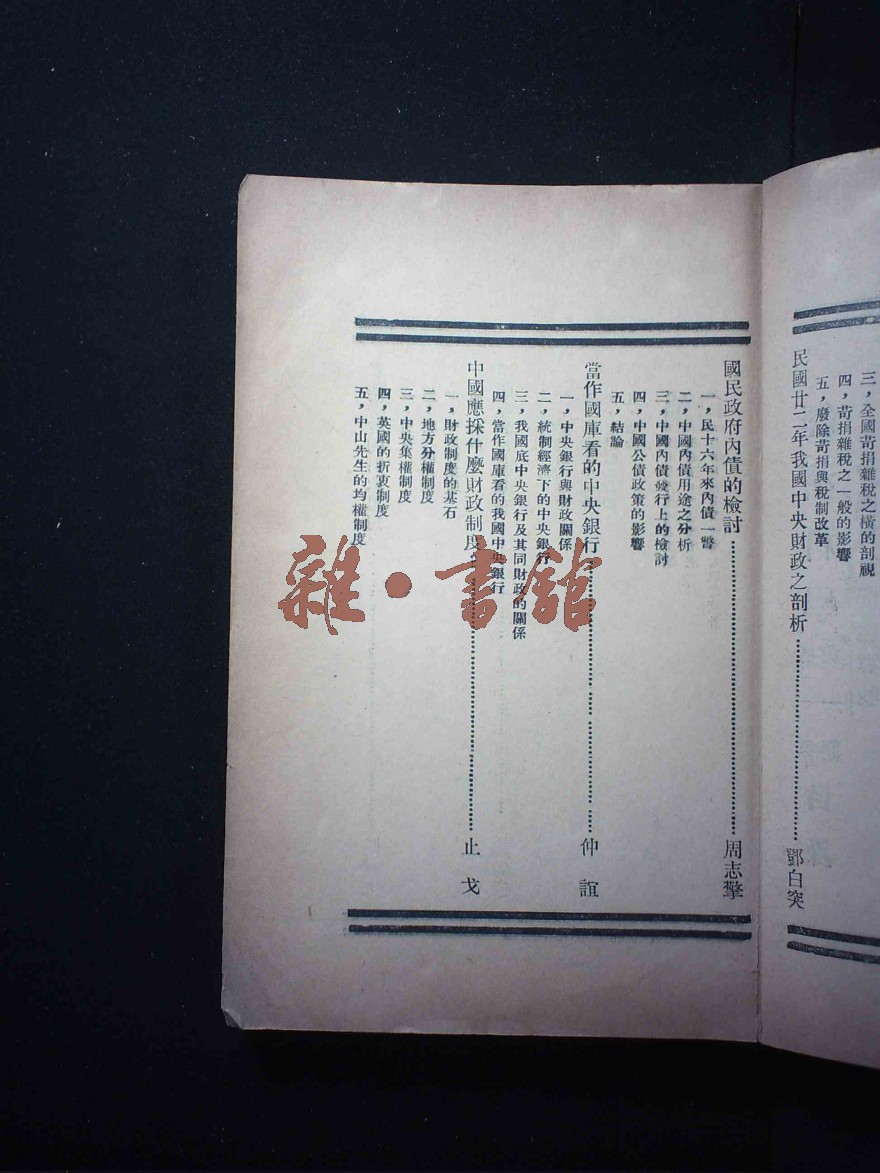 三，全國苛捐雜稅之橫的剖視
四，苛捐雜稅之一般的影響
五，廢除苛捐與稅制改革
民國廿二年我國中央財政之剖析……鄧白突
國民政府內債的檢討……周志擎
一，民十六年來內債一瞥
二，中國內債用途之分析
三，中國內債發行上的檢討
四，中國公債政策的影響
五，結論
當作國庫看的中央銀行……仲誼
一，中央銀行與財政關係
二，統制經濟下的中央銀行
三，我國底中央銀行及其同財政的關係
四，當作國庫看的我國中央銀行
中國應採什麼財政制度……止戈
一，財政制度的基石
二，地方分權制度
三，中央集權制度
四，英國的折衷制度
五，中山先生的均權制度
雜·書館